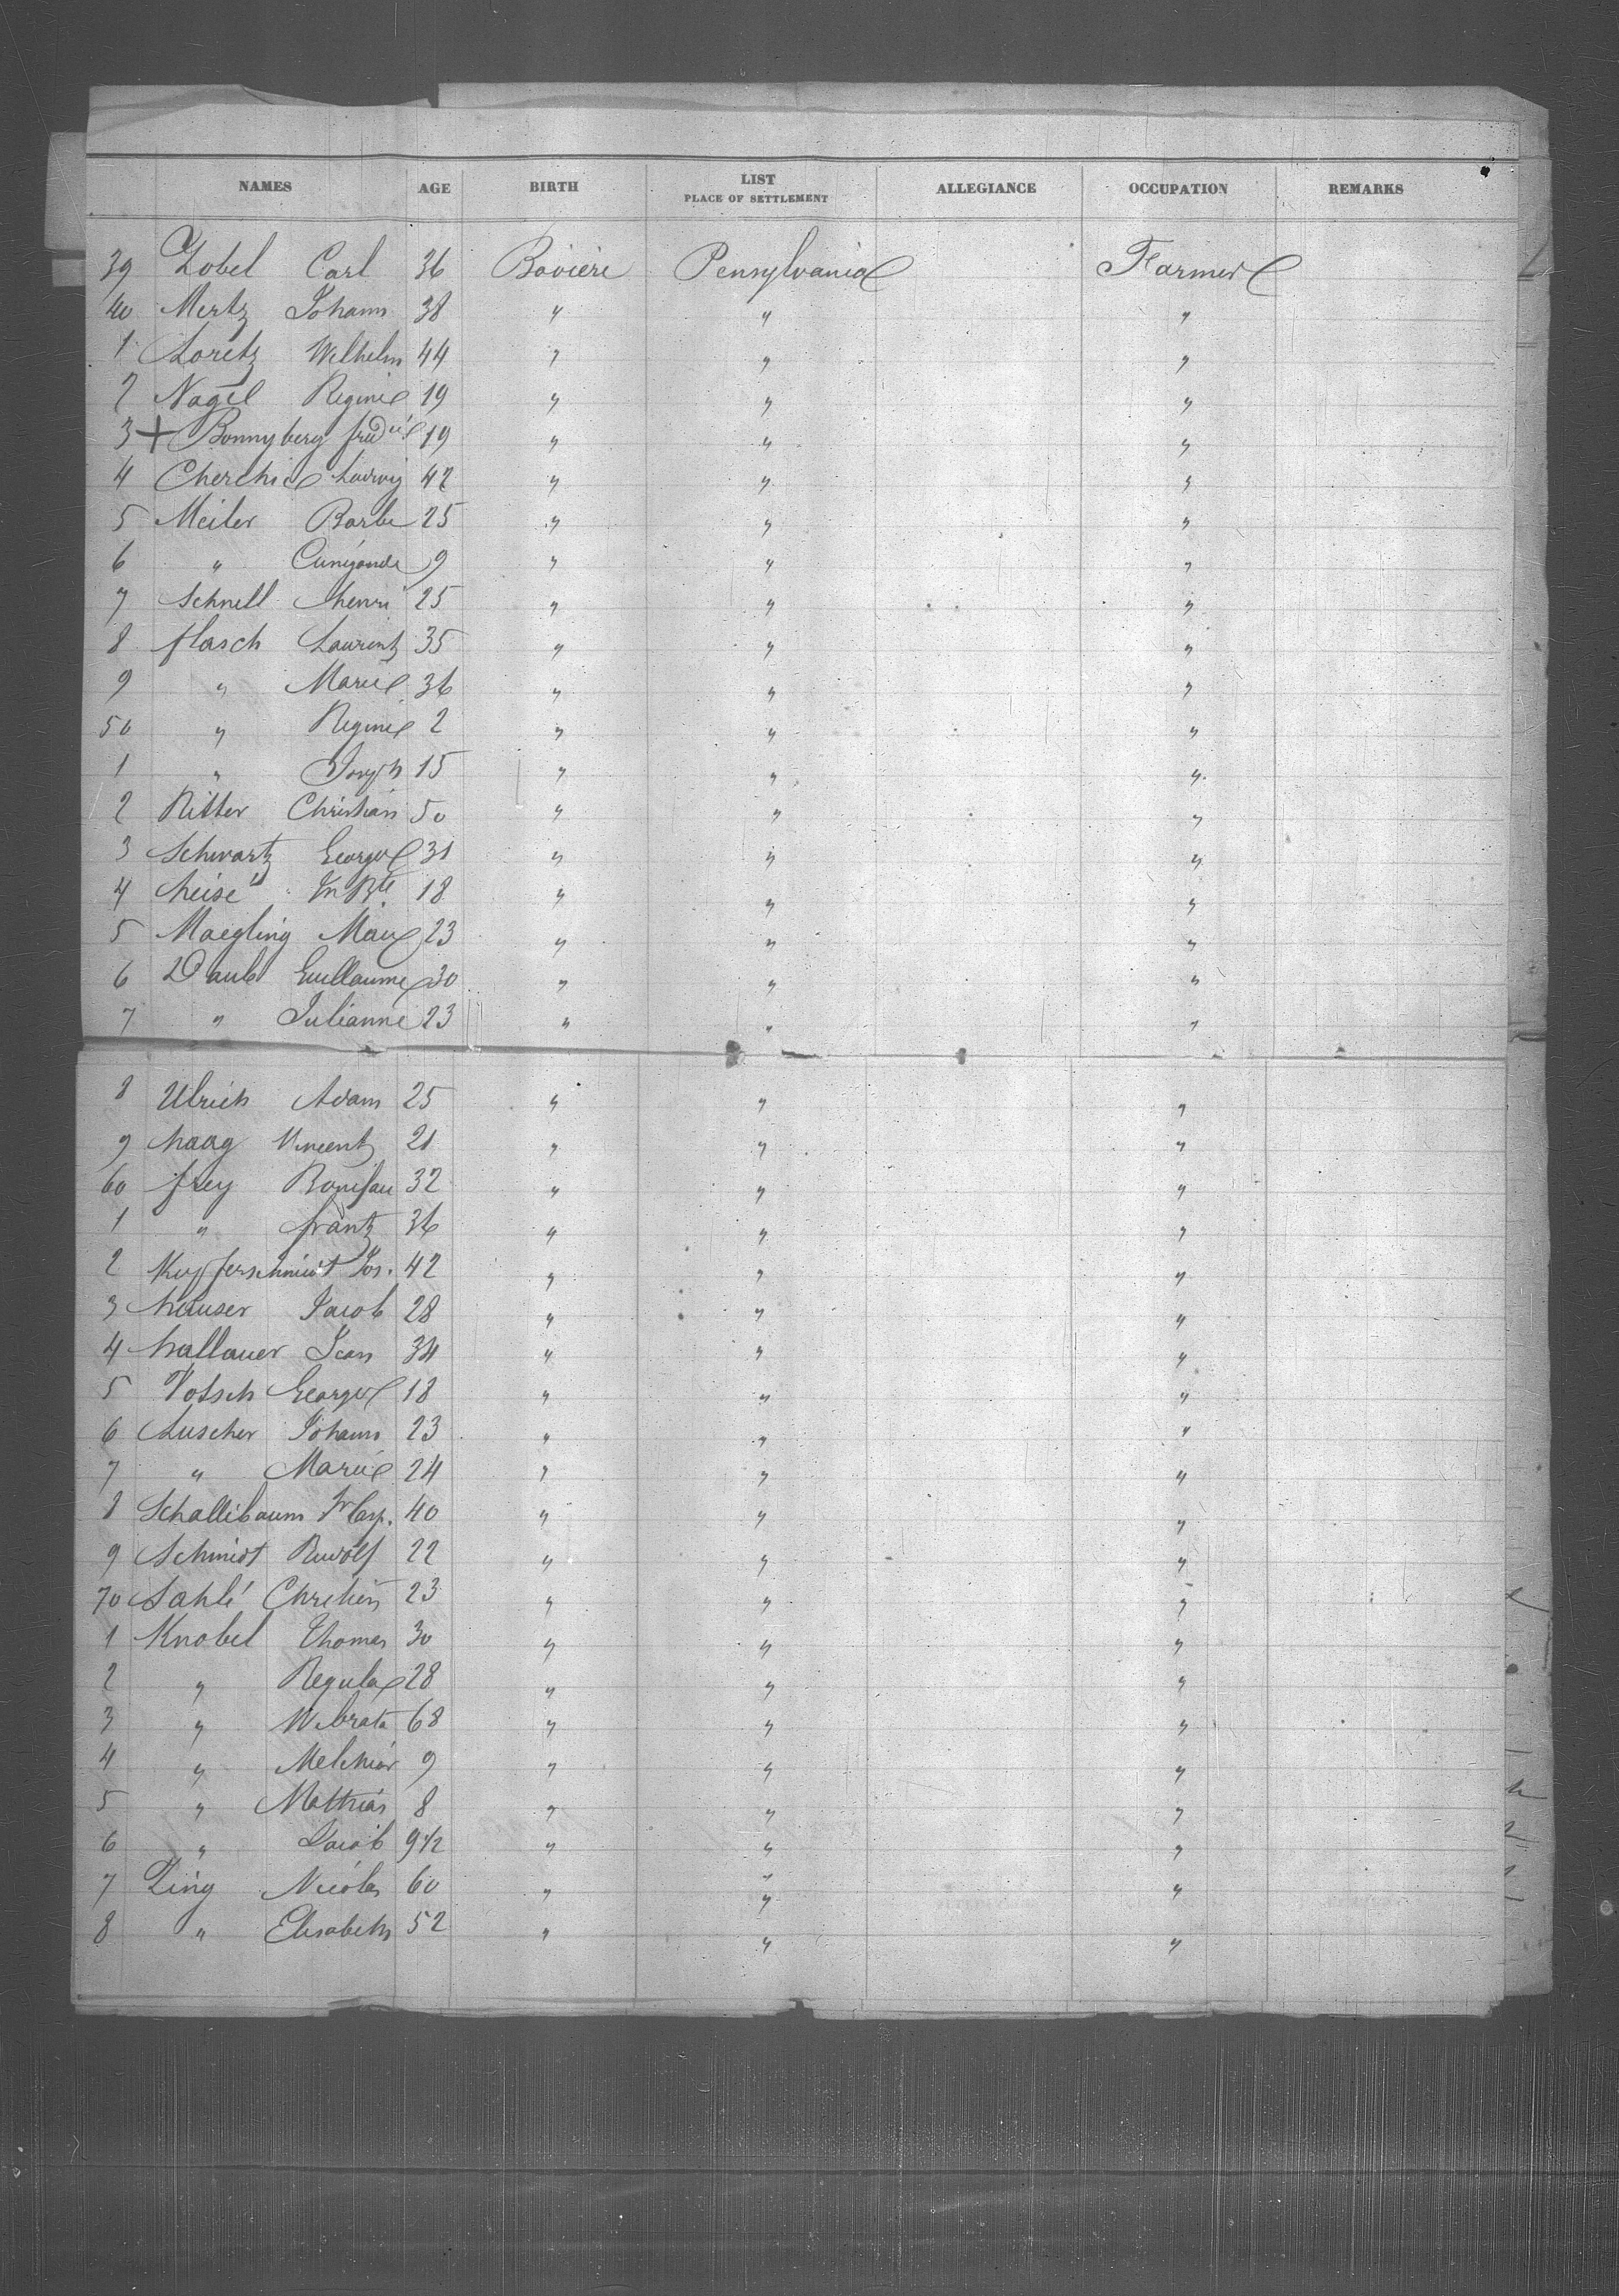 NAMES AGE BIRTH LIST PLACE OF SETTLEMENT ALLEGIANCE OCCUPATION REMARKS
39 Zobel Carl 36 Bavière Pensylvania Farmer
40 Mertz Johann 38 " " "
1 Loretz Wilhelm 44 " " "
2 Nagel Regine 19 " " "
3 + Bonnyberg 19 " " "
4 Cherchie Ludwig 42 " " "
5 Meiler Barbe 25 " " "
6 " Cunigonde 9 " " "
7 Schnell henri 25 " " "
8 flasch Laurentz 35 " " "
9 " Marie 36 " " "
50 " Regine 2 " " "
1 " Joseph 15 " " "
2 Ritter Christian 50 " " "
3 Schwartz George 31 " " "
4 heisé Jn Bte 18 " " "
5 Maegling Max 23 " " "
6 Daub Guillaume 30 " " "
7 " Julianne 23 " " "
8 Ulrich Adam 25 " " "
9 haag Vincentz 21 " " "
60 frey Bonifau 32 " " "
1 " frantz 36 " " "
2 Kupferschmidt Jos. 42 " " "
3 heuser Jacob 28 " " "
4 hallauer Jean 34 " " "
5 Votsch George 18 " " "
6 Luscher Johann 23 " " "
7 " Marie 24 " " "
8 Schallibaum 40 " " "
9 Schmidt Rudolf 22 " " "
70 Sahlé Chretien 23 " " "
1 Knobel Thomas 30 " " "
2 " Regula 28 " " "
3 " 68 " " "
4 " Melchior 9 " " "
5 " Mathias 8 " " "
6 " Jacob 9 1/2 " " "
7 Ling Nicolas 60 " " "
8 " Elisabeth 52 " " "